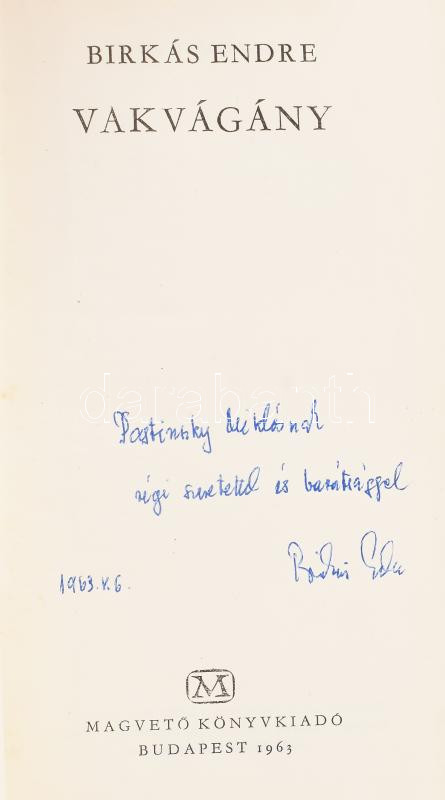 BIRKÁS ENDRE
VAKVÁGÁNY
darabanth
Pastinszky Miklósnak
régi szeretettel és barátsággal
Birkás Endre
1963. V. 6.
M
MAGVETŐ KÖNYVKIADÓ
BUDAPEST 1963